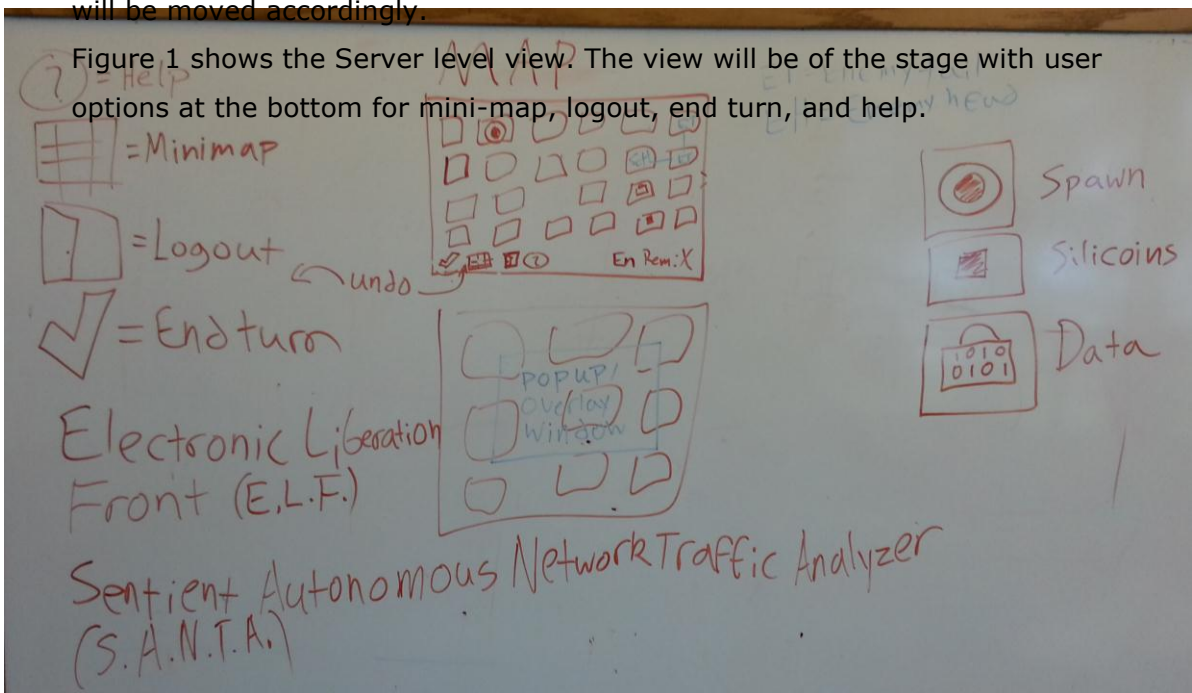 will be moved accordingly.
Figure 1 shows the Server level view. The view will be of the stage with user
options at the bottom for mini-map, logout, end turn, and help.
MAP
? = Help
= Minimap
= Logout
undo
= End turn
En Rem: X
EH
Popup/
Overlay
Window
Spawn
Silicoins
1010
0101
Data
Electronic Liberation
Front (E.L.F.)
Sentient Autonomous Network Traffic Analyzer
(S.A.N.T.A.)